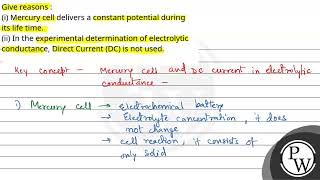 Give reasons :
(i) Mercury cell delivers a constant potential during
its life time.
(ii) In the experimental determination of electrolytic
conductance, Direct Current (DC) is not used.
Key concept - Mercury cell and DC current in electrolytic
conductance -
i) Mercury cell → Electrochemical battery
→ Electrolyte concentration, it does
not change
→ cell reaction, it consists of
only solid
P
W